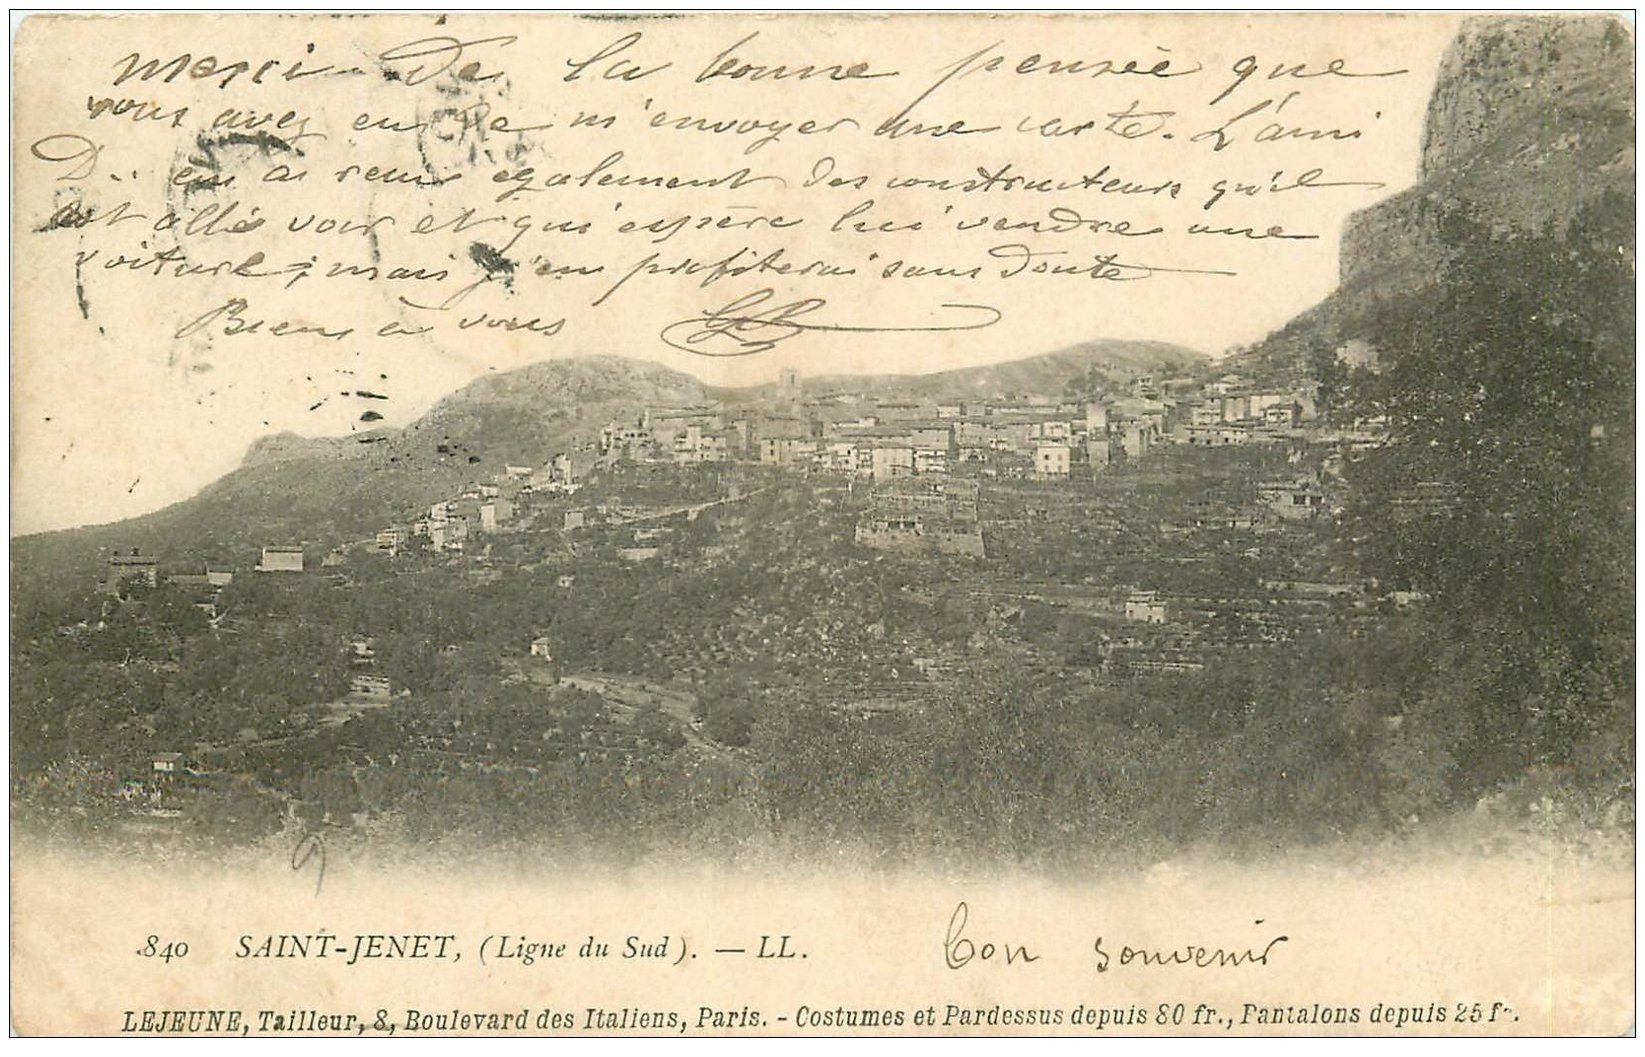 merci De la bonne pensée que
vous avez eu De m'envoyer une carte. L'ami
D.. en a reçu egalement des constructeurs qu'il
est allé voir et qui espère lui vendre une
voiture; mais j'en profiterai sans Doute
Bien à vous
840 SAINT-JENET, (Ligne du Sud). — LL.
bon souvenir
LEJEUNE, Tailleur, 8, Boulevard des Italiens, Paris. - Costumes et Pardessus depuis 80 fr., Pantalons depuis 25 fr.